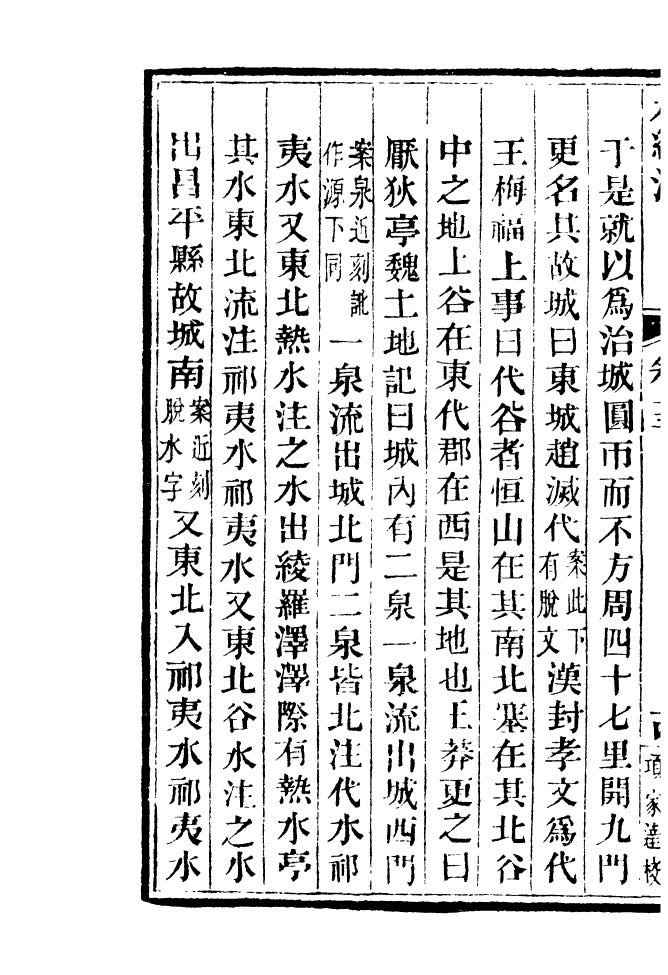 于是就以爲治城圓帀而不方周四十七里開九門
更名其故城曰東城趙滅代案此下有脫文漢封孝文爲代
王梅福上事曰代谷者恒山在其南北塞在其北谷
中之地上谷在東代郡在西是其地也王莽更之曰
厭狄亭魏土地記曰城內有二泉一泉流出城西門
案泉近刻訛作源下同一泉流出城北門二泉皆北注代水祁
夷水又東北熱水注之水出綾羅澤澤際有熱水亭
其水東北流注祁夷水祁夷水又東北谷水注之水
出昌平縣故城南案近刻脫水字又東北入祁夷水祁夷水